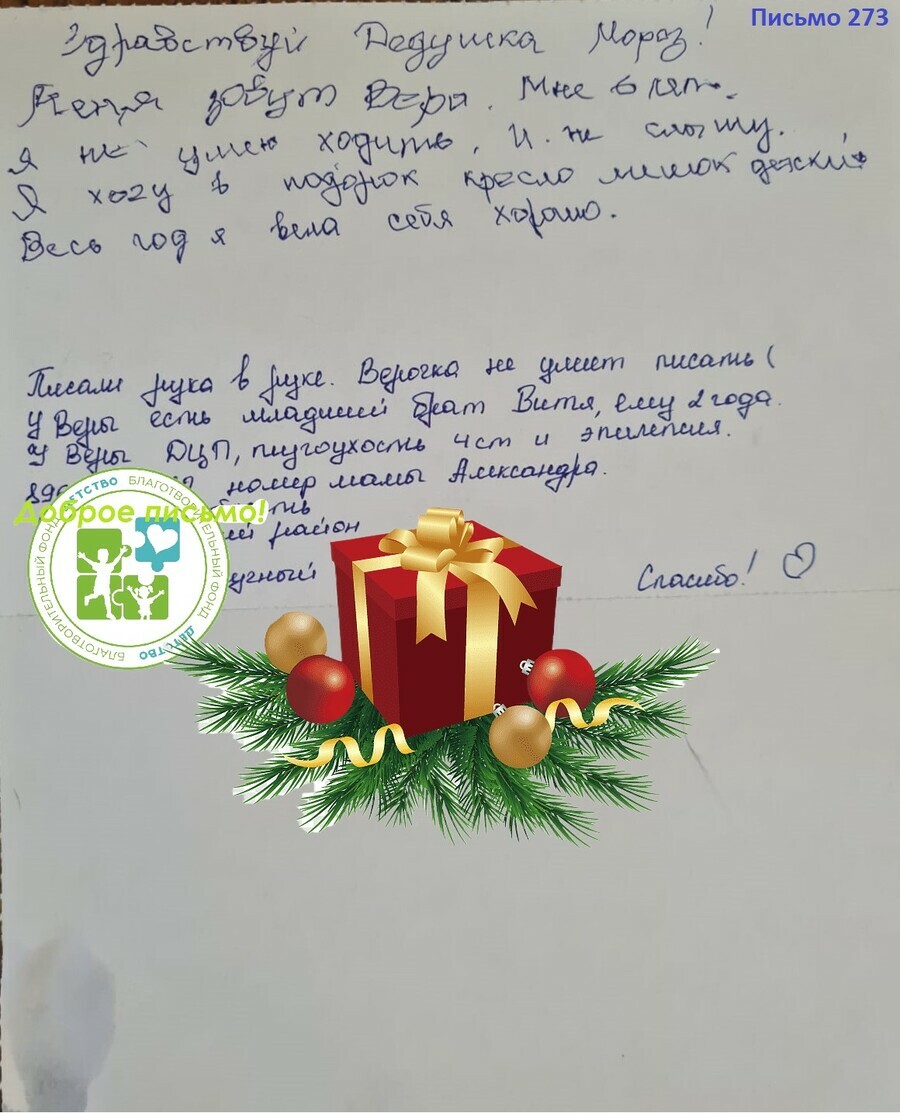 Письмо 273
Здравствуй Дедушка Мороз!
Меня зовут Вера. Мне 6 лет.
Я не умею ходить, и не слышу.
Я хочу в подарок кресло мешок детский
Весь год я вела себя хорошо.
Писали рука в руке. Верочка не умеет писать (
У Веры есть младший брат Витя, ему 2 года.
У Веры ДЦП, тугоухость 4 ст и эпилепсия.
номер мамы Александра.
Доброе письмо!
район
Спасибо!
БЛАГОТВОРИТЕЛЬНЫЙ ФОНД ДЕТСТВО БЛАГОТВОРИТЕЛЬНЫЙ ФОНД ДЕТСТВО